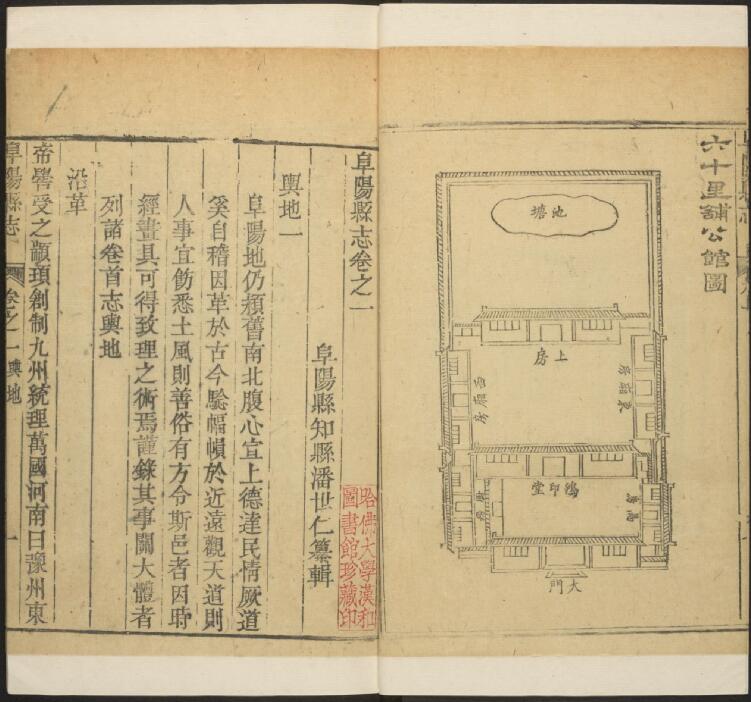 六十里舖公館圖
池塘
上房
東廂房
西廂房
鴻印堂
大門
哈佛大學漢和
圖書館珍藏印
阜陽縣志卷之一
阜陽縣知縣潘世仁纂輯
輿地一
阜陽地仍頖舊南北腹心宣上德達民情厥道
奚自稽因革於古今騐幅幀於近遠觀天道則
人事宜飭悉土風則善俗有方令斯邑者因時
經畫具可得致理之術焉謹錄其事關大體者
列諸卷首志輿地
沿革
帝嚳受之顓頊創制九州統理萬國河南曰豫州東
阜陽縣志
卷之一輿地
一